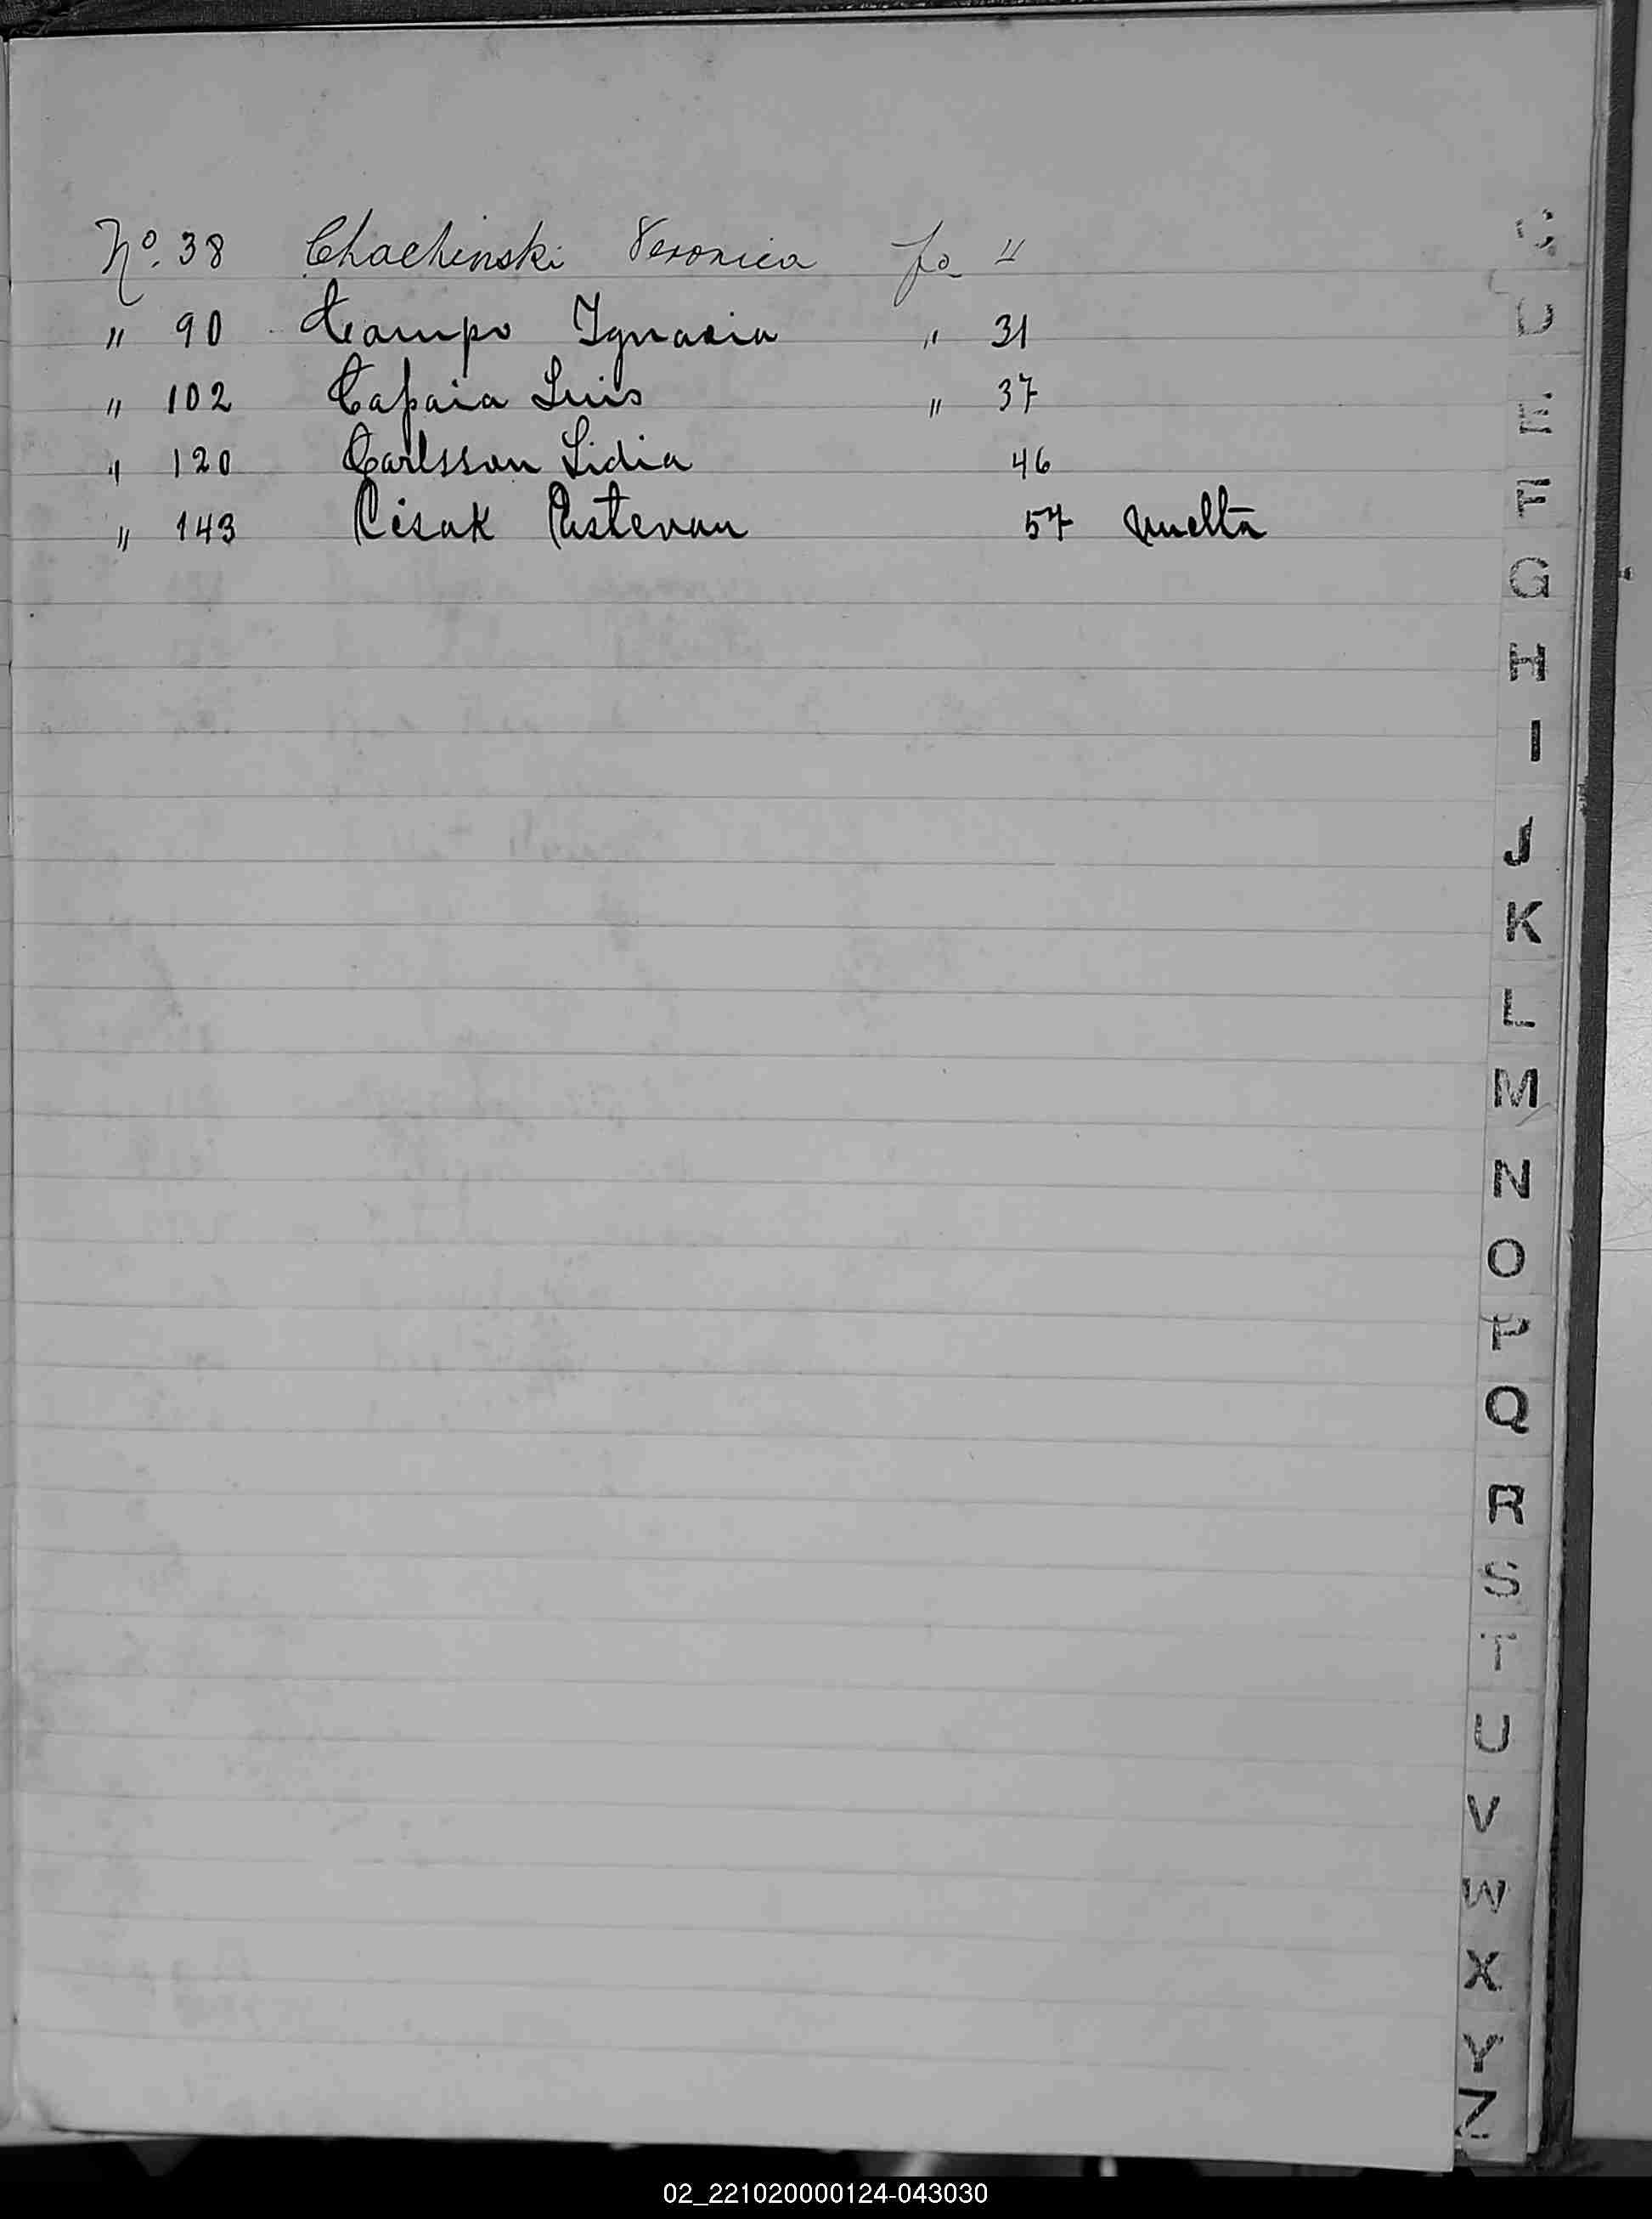 Nº. 38 Chachinski Veronica fo 4
" 90 Campo Ignacia " 31
" 102 Capaia Luis " 37
" 120 Carlsson Lidia 46
" 143 Cisak Estevan 57 vuelta
C
D
E
F
G
H
I
J
K
L
M
N
O
P
Q
R
S
T
U
V
W
X
Y
Z
02_221020000124-043030